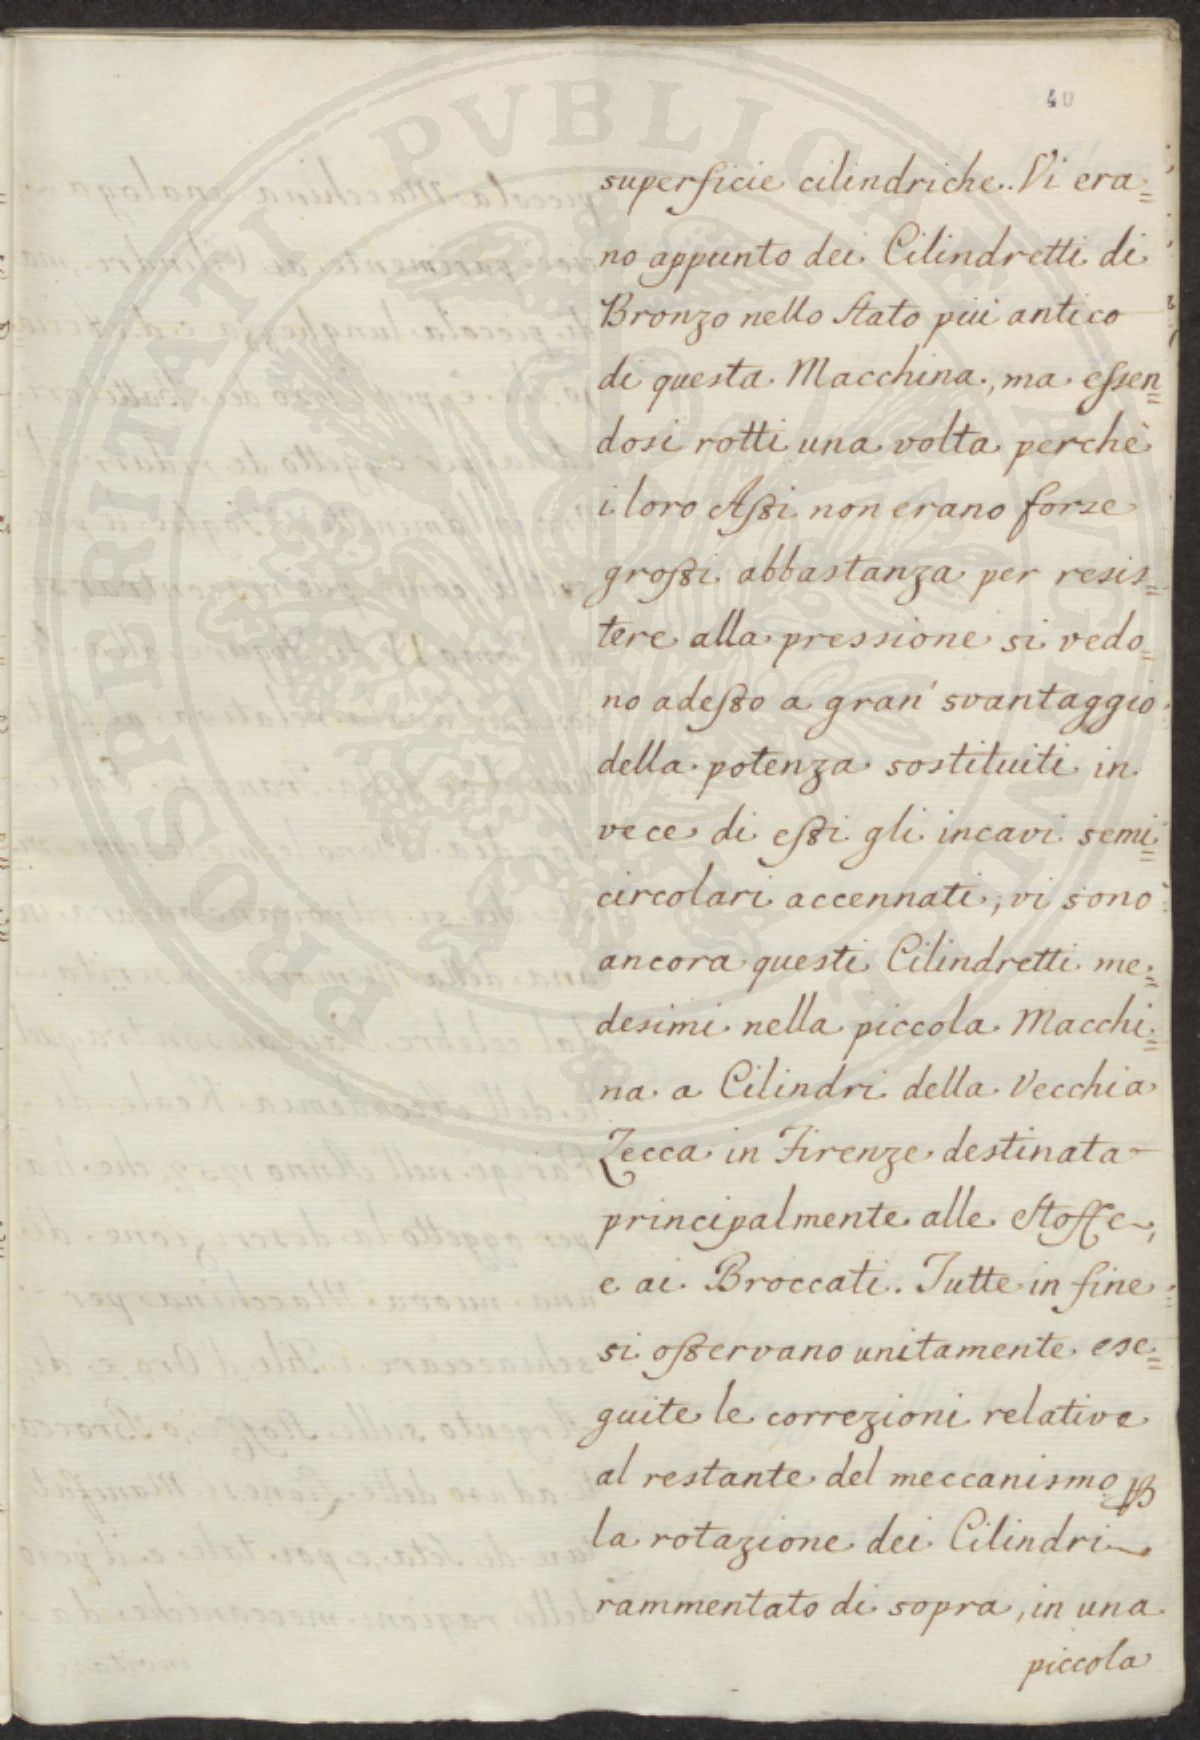 40
superficie cilindriche. Vi era=
no appunto dei Cilindretti di
Bronzo nello stato più antico
di questa Macchina, ma essen=
dosi rotti una volta perchè
i loro Assi non erano forse
grossi abbastanza per resis=
tere alla pressione si vedo=
no adesso a gran' svantaggio
della potenza sostituiti in
vece di essi gli incavi semi=
circolari accennati, vi sono
ancora questi Cilindretti me=
desimi nella piccola Macchi=
na a Cilindri della Vecchia
Zecca in Firenze destinata
principalmente alle Stoffe,
e ai Broccati. Tutte in fine
si osservano unitamente ese=
guite le correzioni relative
al restante del meccanismo p
la rotazione dei Cilindri
rammentato di sopra, in una
piccola
PROSPERITATI PVBLICAE AVGENDAE